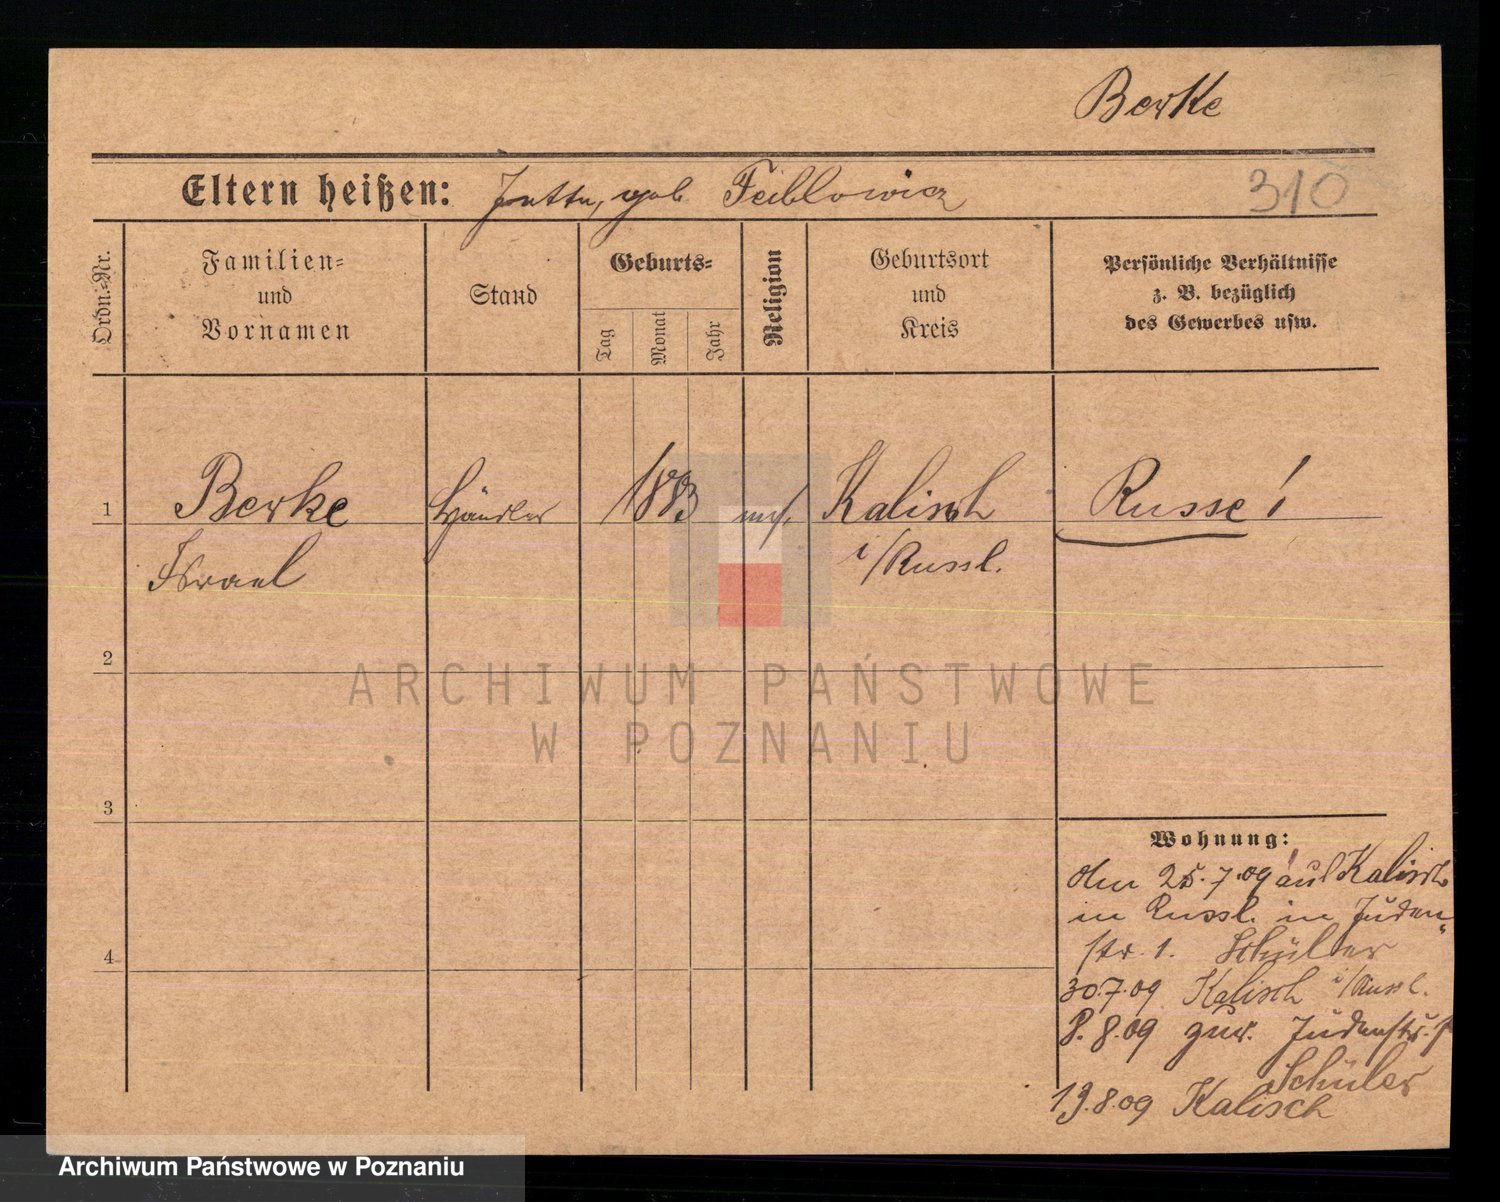 Berke
Eltern heißen: Jutta, geb. Feiblowicz
310
Ordn.-Nr.
Familien-
und
Vornamen
Stand
Geburts-
Tag
Monat
Jahr
Religion
Geburtsort
und
Kreis
Persönliche Verhältnisse
z. B. bezüglich
des Gewerbes usw.
1
Berke
Israel
Händler
1883
mos.
Kalisch
i/Russl.
Russe!
2
3
4
Wohnung:
den 25.7.09 aus Kalisch
in Russl. in Juden
str. 1. Schüler
30.7.09 Kalisch i/Russl.
8.8.09 zur. Judenstr. 1
Schüler
19.8.09 Kalisch
ARCHIWUM PAŃSTWOWE
W POZNANIU
Archiwum Państwowe w Poznaniu